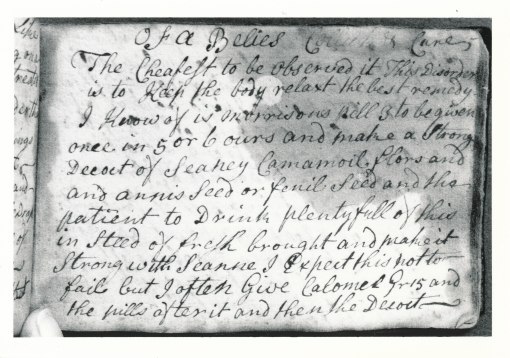 Of A Belies Cure
The Cheafest to be observed it This Disorder
is to Keep the body relaxt the best remedy
I Know of is morrisons pill 3 to be given
once in 5 or 6 ours and make a Strong
Decoct of Seaney Camamoil flors and
and annis Seed or fenil Seed and the
patient to Drink plentyfull of this
in Steed of fresh brought and make it
Strong with Seanne I Expect this not to
fail but I often Give Calomel Gr 15 and
the pills after it and then the Decoit